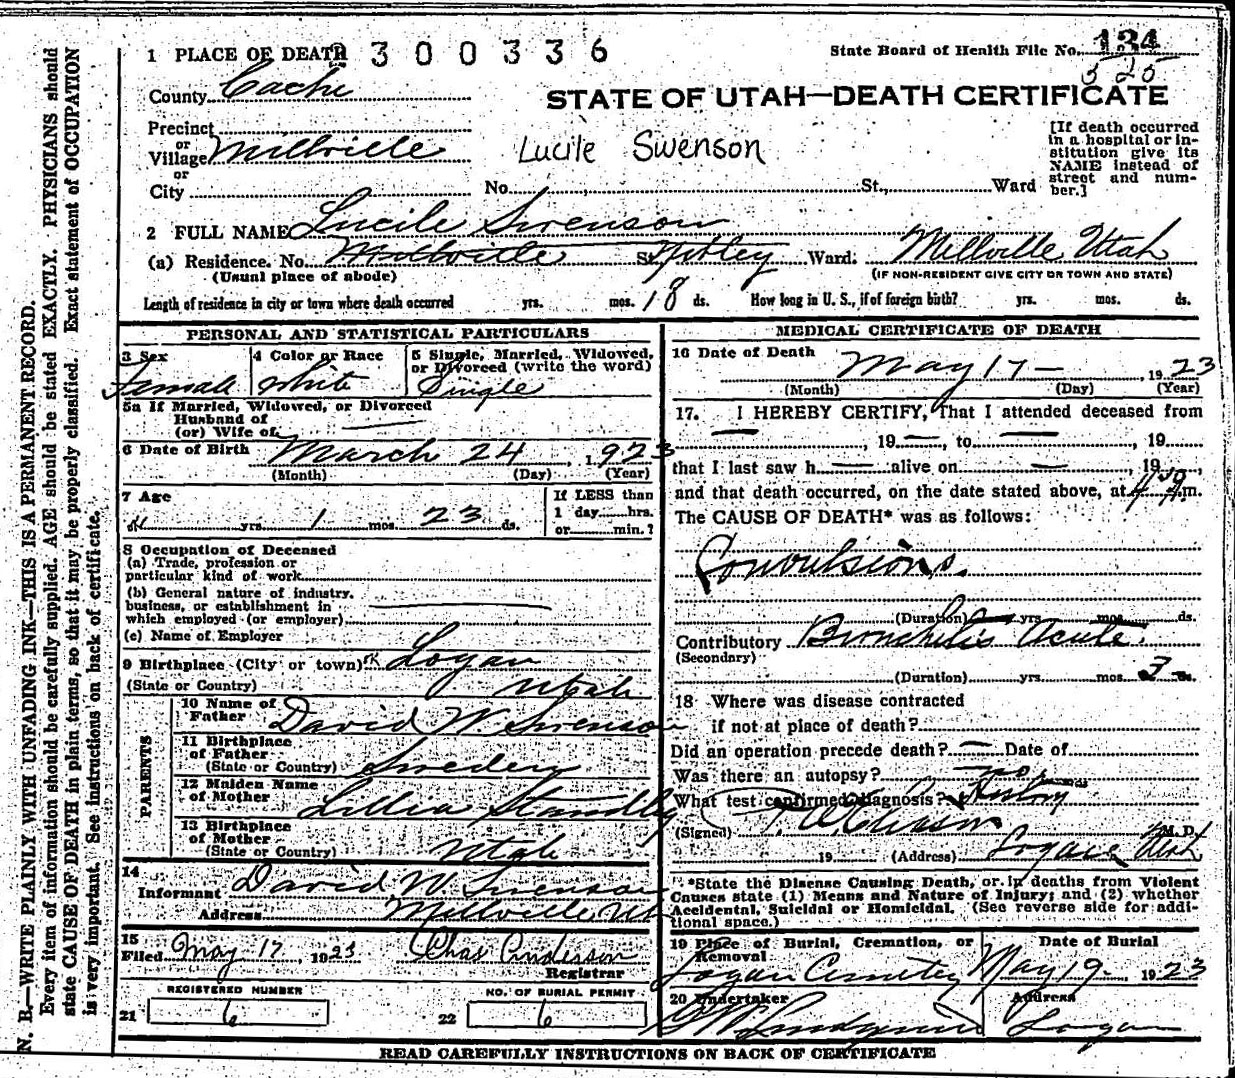 N. B.—WRITE PLAINLY WITH UNFADING INK—THIS IS A PERMANENT RECORD.
Every item of information should be carefully supplied. AGE should be stated EXACTLY. PHYSICIANS should
state CAUSE OF DEATH in plain terms, so that it may be properly classified. Exact statement of OCCUPATION
is very important. See instructions on back of certificate.
1 PLACE OF DEATH 2300336
State Board of Health File No. 134
525
County Cache
STATE OF UTAH—DEATH CERTIFICATE
Precinct
or
Village Millville
Lucile Swenson
[If death occurred
in a hospital or in-
stitution give its
NAME instead of
street and num-
ber.]
or
City No. St., Ward
2 FULL NAME Lucile Swenson
(a) Residence. No. Millville St. Nibley Ward. Millville Utah
(Usual place of abode) (IF NON-RESIDENT GIVE CITY OR TOWN AND STATE)
Length of residence in city or town where death occurred yrs. mos. 18 ds. How long in U. S., if of foreign birth? yrs. mos. ds.
PERSONAL AND STATISTICAL PARTICULARS
3 Sex
Female
4 Color or Race
White
5 Single, Married, Widowed,
or Divorced (write the word)
Single
5a If Married, Widowed, or Divorced
Husband of
(or) Wife of
6 Date of Birth March 24, 1923
(Month) (Day) (Year)
7 Age
yrs. 1 mos. 23 ds.
If LESS than
1 day hrs.
or min.?
8 Occupation of Deceased
(a) Trade, profession or
particular kind of work
(b) General nature of industry,
business, or establishment in
which employed (or employer)
(c) Name of Employer
9 Birthplace (City or town) Logan
(State or Country) Utah
PARENTS
10 Name of
Father David W. Swenson
11 Birthplace
of Father
(State or Country) Sweden
12 Maiden Name
of Mother Lillia Standley
13 Birthplace
of Mother
(State or Country) Utah
14
Informant David W. Swenson
Address Millville Ut
15
Filed May 17, 1923 Chas Anderson
Registrar
REGISTERED NUMBER
21 6
NO. OF BURIAL PERMIT
22 6
MEDICAL CERTIFICATE OF DEATH
16 Date of Death
May 17 — , 1923
(Month) (Day) (Year)
17. I HEREBY CERTIFY, That I attended deceased from
— , 19 — , to — , 19
that I last saw h — alive on — , 19 ,
and that death occurred, on the date stated above, at 4 m.
The CAUSE OF DEATH* was as follows:
Convulsions.
(Duration) yrs. mos. ds.
Contributory Bronchitis Acute.
(Secondary)
(Duration) yrs. mos. 3 ds.
18 Where was disease contracted
if not at place of death?
Did an operation precede death? — Date of
Was there an autopsy? no
What test confirmed diagnosis? History
(Signed) M. D.
19 (Address) Logan Utah
*State the Disease Causing Death, or in deaths from Violent
Causes state (1) Means and Nature of Injury; and (2) whether
Accidental, Suicidal or Homicidal. (See reverse side for addi-
tional space.)
19 Place of Burial, Cremation, or
Removal
Logan Cemetery
Date of Burial
May 19, 1923
20 Undertaker
Address
Logan
READ CAREFULLY INSTRUCTIONS ON BACK OF CERTIFICATE